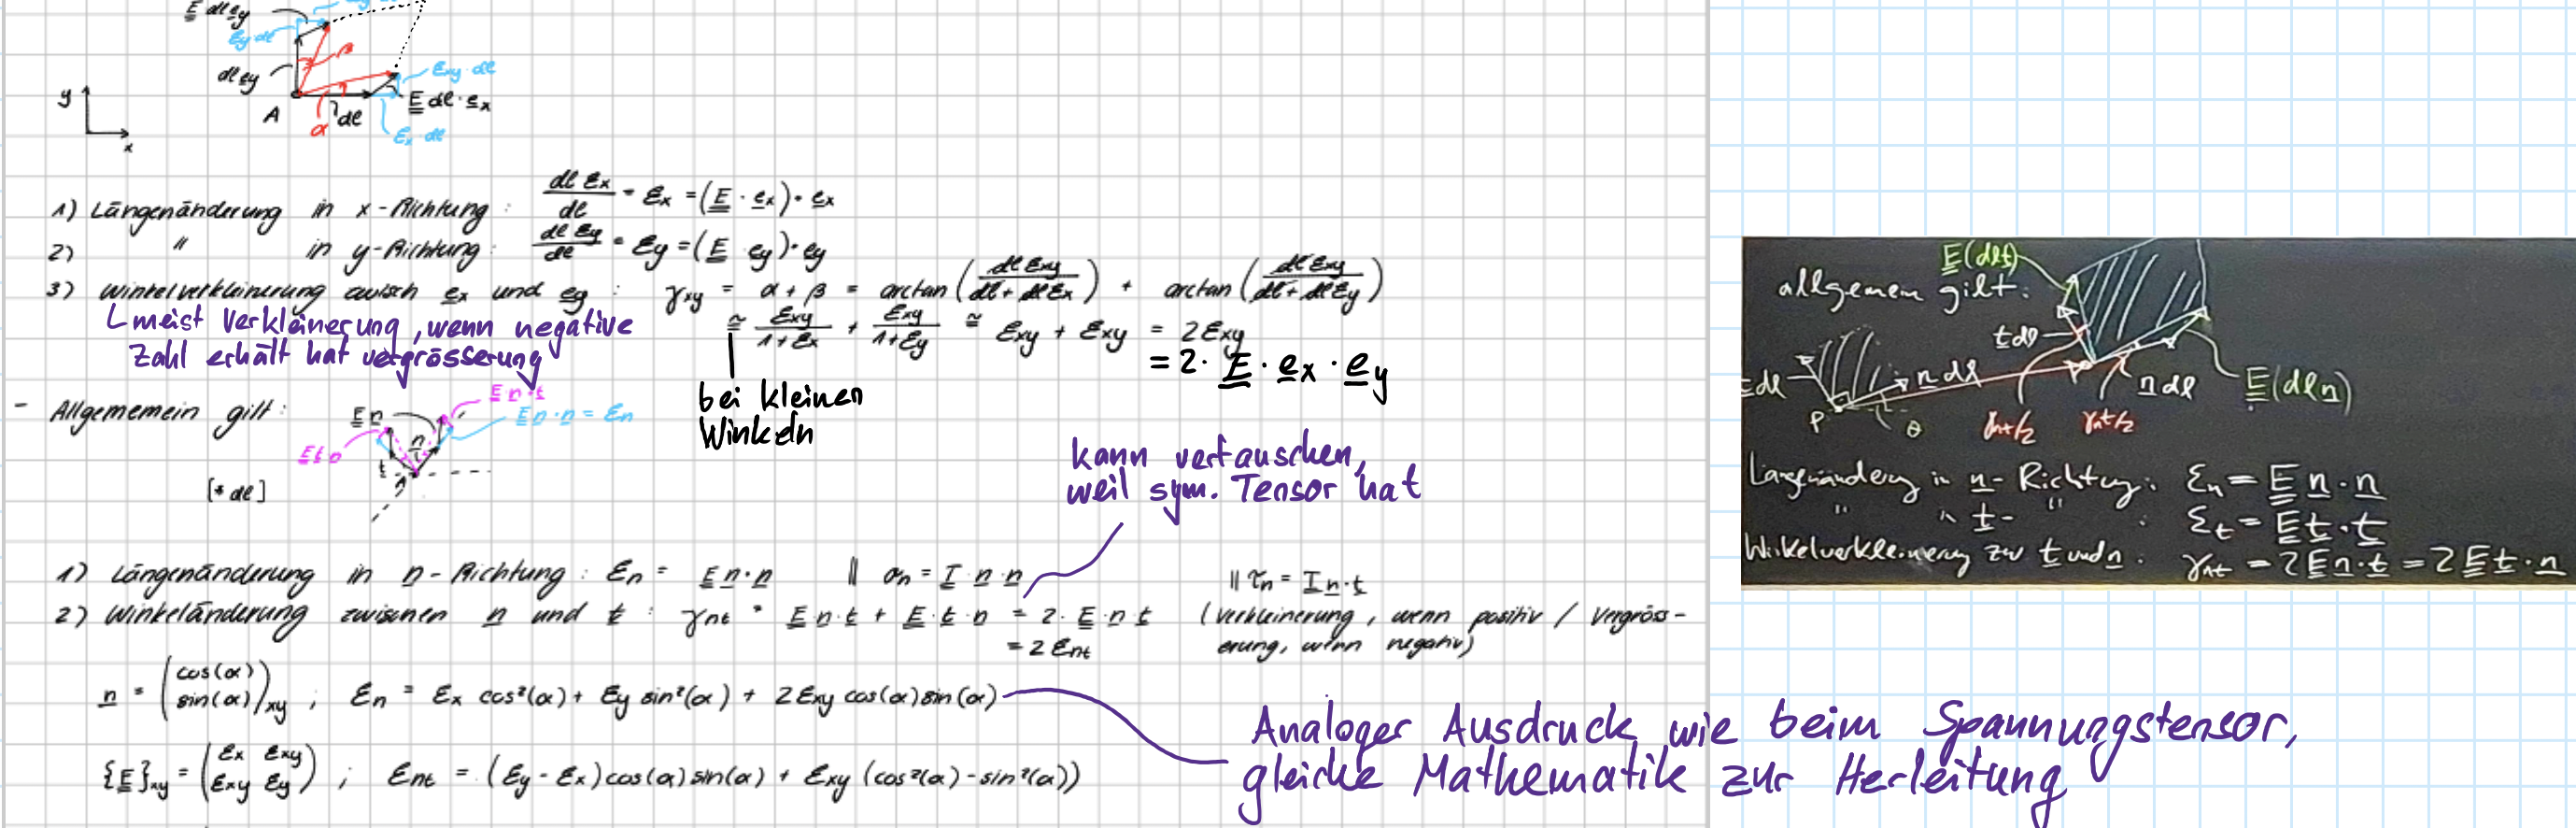 E dl ey
εy dl
β
dl ey
εxy dl
E dl · ex
y
A
α
dl
εx dl
x
1) Längenänderung in x-Richtung : dl εx / dl = εx = (E · ex) · ex
2) " in y-Richtung : dl εy / dl = εy = (E ey) · ey
3) Winkelverkleinerung zwisch ex und ey : γxy = α + β = arctan (dl εxy / dl + dl εx) + arctan (dl εxy / dl + dl εy)
meist Verkleinerung, wenn negative
Zahl erhält hat vergrösserung
≅ εxy / 1+εx + εxy / 1+εy ≅ εxy + εxy = 2εxy
= 2 · E · ex · ey
bei kleinen
Winkeln
- Allgememein gilt :
E n
E n · t
E n · n = εn
E t · n
n
t
[* dl]
kann vertauschen,
weil sym. Tensor hat
1) Längenänderung in n-Richtung : εn = E n · n || σn = T n · n || τn = T n · t
2) Winkeländerung zwischen n und t : γnt = E · n · t + E · t · n = 2 · E · n t (Verkleinerung, wenn positiv / Vergröss-
= 2 εnt erung, wenn negativ)
n = (cos(α) sin(α))xy ; εn = εx cos²(α) + εy sin²(α) + 2εxy cos(α) sin(α)
{E}xy = (εx εxy εxy εy) ; εnt = (εy - εx) cos(α) sin(α) + εxy (cos²(α) - sin²(α))
Analoger Ausdruck wie beim Spannungstensor,
gleiche Mathematik zur Herleitung
allgemein gilt :
E(dlt)
t dl
n dl
n dl
E(dl n)
P
θ
γnt/2
γnt/2
Längenänderung in n- Richtung : εn = E n · n
" " t- " : εt = E t · t
Winkelverkleinerung zw t und n : γnt = 2 E n · t = 2 E t · n